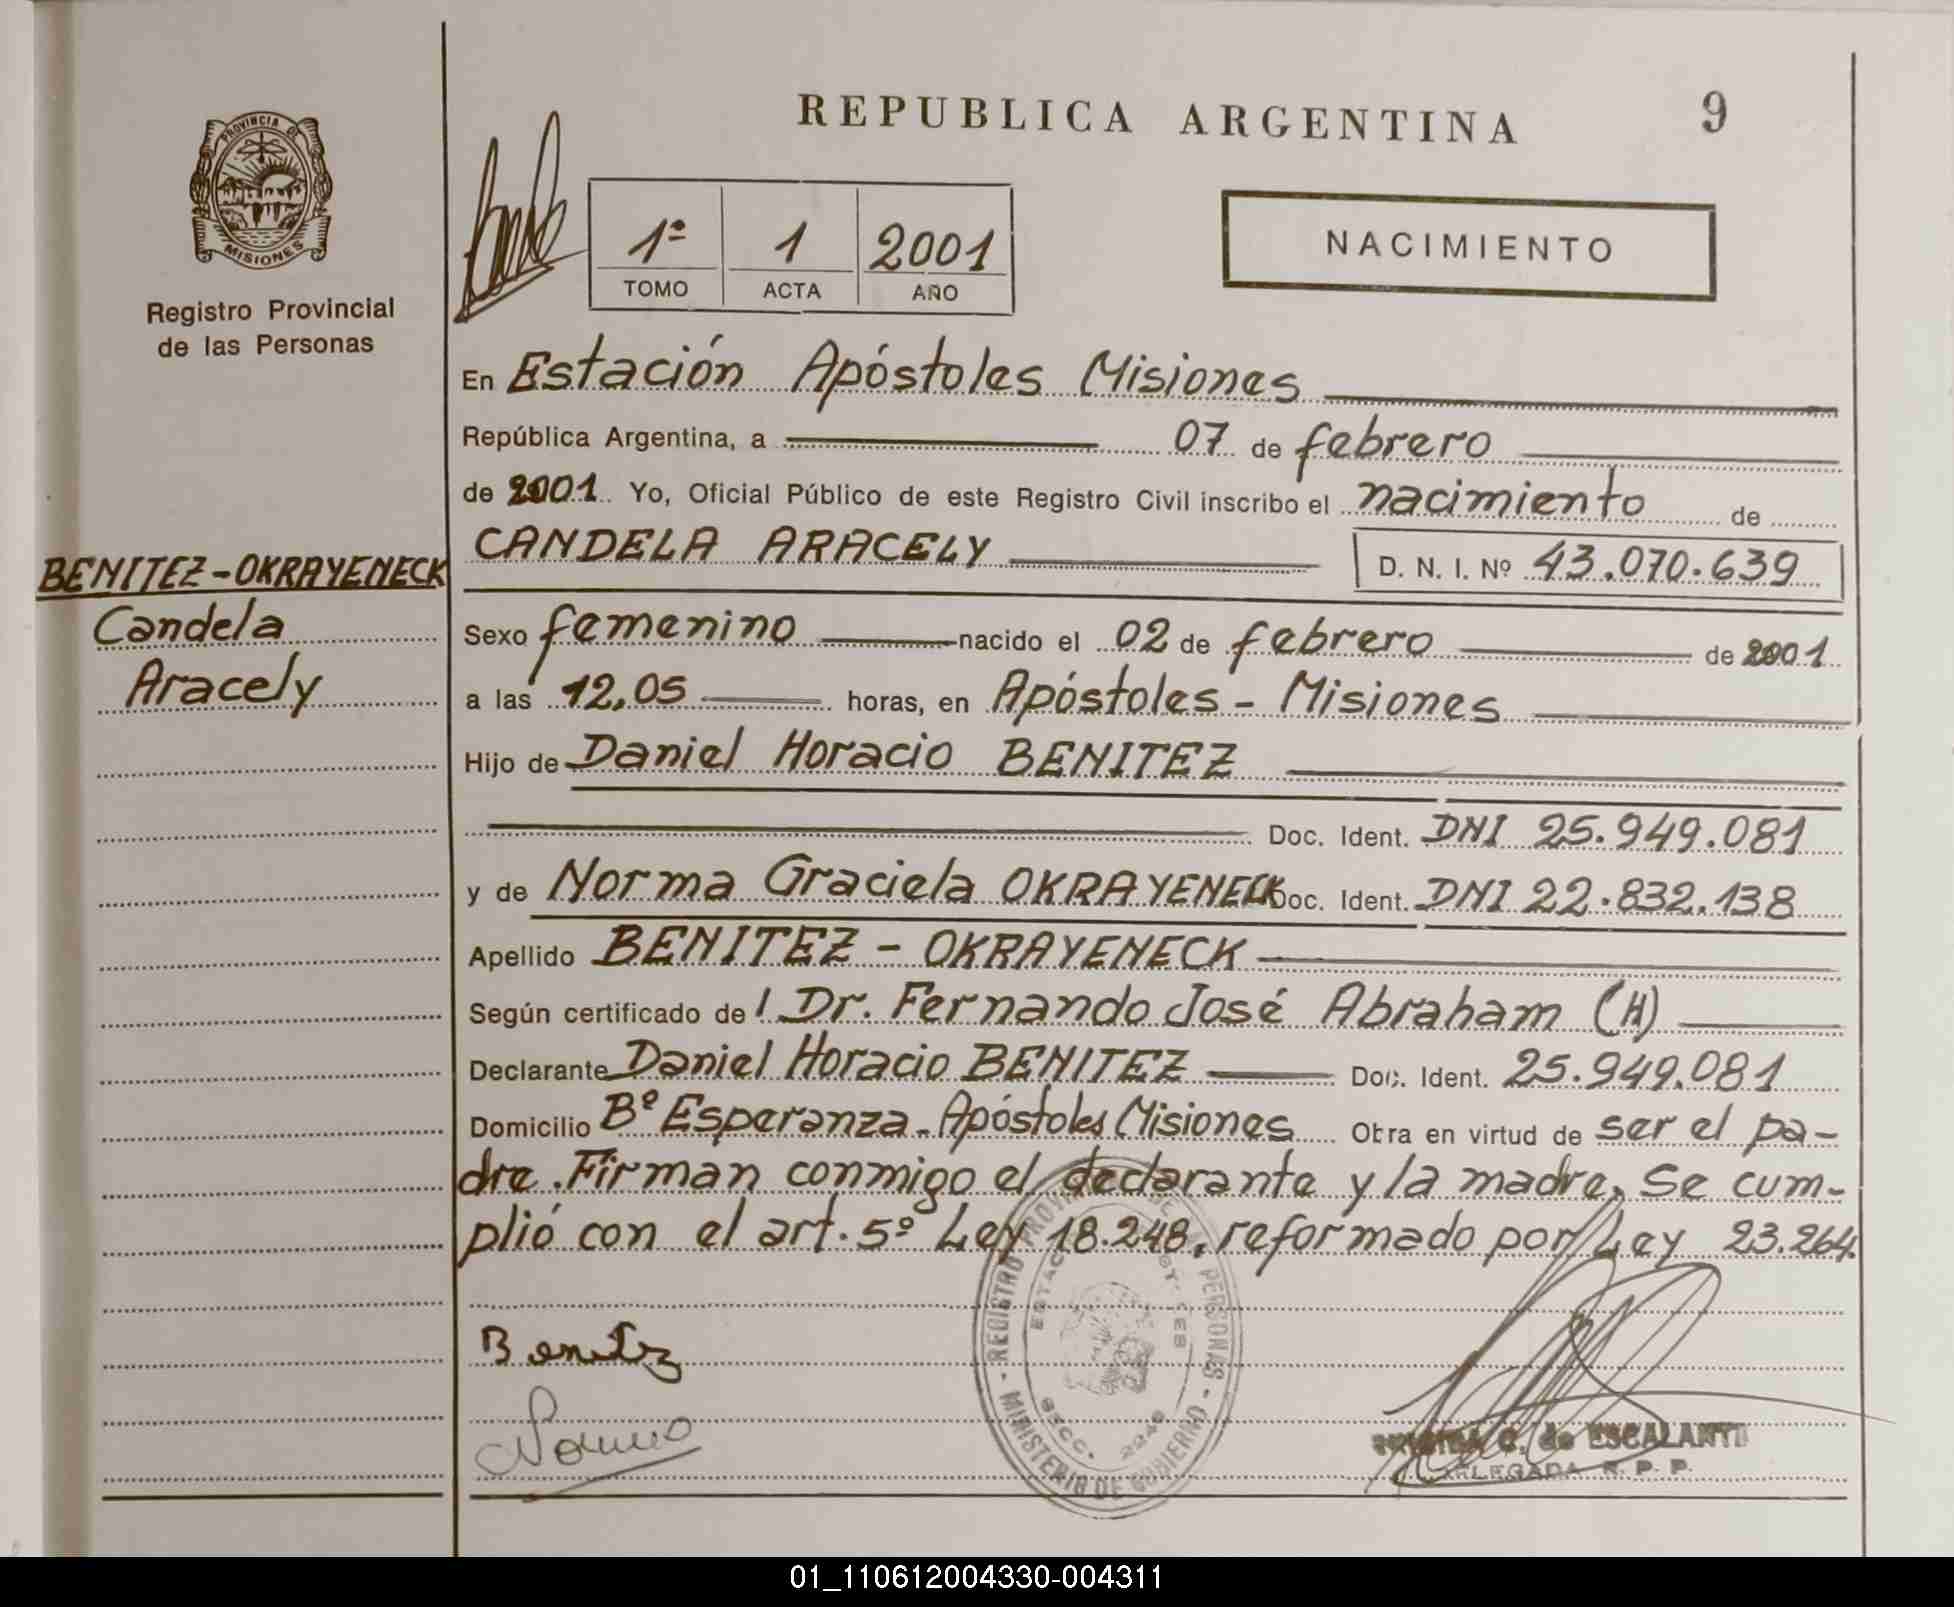 REPUBLICA ARGENTINA
9
PROVINCIA DE
MISIONES
Registro Provincial
de las Personas
1º 1 2001
TOMO ACTA AÑO
NACIMIENTO
En Estación Apóstoles Misiones
República Argentina, a 07 de febrero
de 2001 Yo, Oficial Público de este Registro Civil inscribo el nacimiento de
CANDELA ARACELY D. N. I. Nº 43.070.639
BENITEZ-OKRAYENECK
Candela
Aracely
Sexo femenino nacido el 02 de febrero de 2001
a las 12,05 horas, en Apóstoles - Misiones
Hijo de Daniel Horacio BENITEZ
Doc. Ident. DNI 25.949.081
y de Norma Graciela OKRAYENECK Doc. Ident. DNI 22.832.138
Apellido BENITEZ - OKRAYENECK
Según certificado de l Dr. Fernando José Abraham (H)
Declarante Daniel Horacio BENITEZ Doc. Ident. 25.949.081
Domicilio Bº Esperanza - Apóstoles Misiones Obra en virtud de ser el pa-
dre. Firman conmigo el declarante y la madre. Se cum-
plió con el art. 5º Ley 18.248, reformado por Ley 23.264.
Benitez
Norma
REGISTRO DE LAS PERSONAS - MINISTERIO DE GOBIERNO -
SECC. 2246
C. de ESCALANTE
DELEGADA R. P. P.
01_110612004330-004311